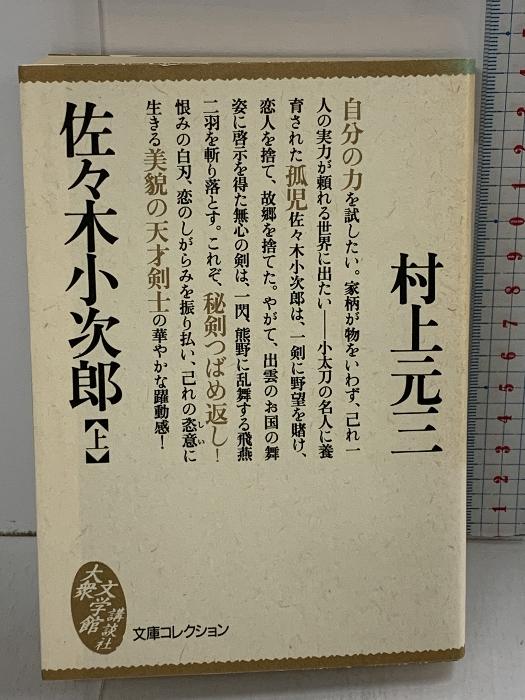 村上元三
自分の力を試したい。家柄が物をいわず、己れ一
人の実力が頼れる世界に出たい——小太刀の名人に養
育された孤児佐々木小次郎は、一剣に野望を賭け、
恋人を捨て、故郷を捨てた。やがて、出雲のお国の舞
姿に啓示を得た無心の剣は、一閃、熊野に乱舞する飛燕
二羽を斬り落とす。これぞ、秘剣つばめ返し！
恨みの白刃、恋のしがらみを振り払い、己れの恣意に
しい
生きる美貌の天才剣士の華やかな躍動感！
佐々木小次郎【上】
大衆
文学館
講談社
文庫コレクション
1
2
3
4
5
6
7
8
9